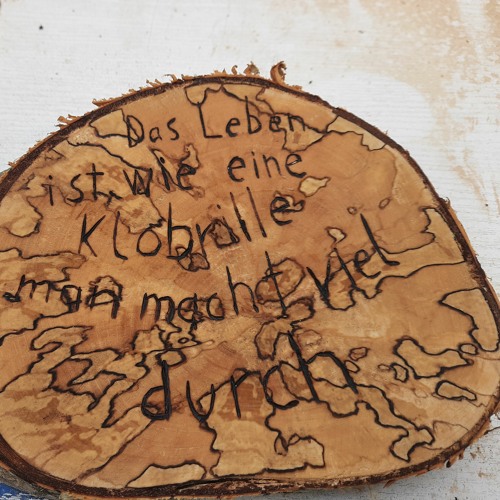 Das Leben
ist, wie eine
Klobrille
man macht viel
durch